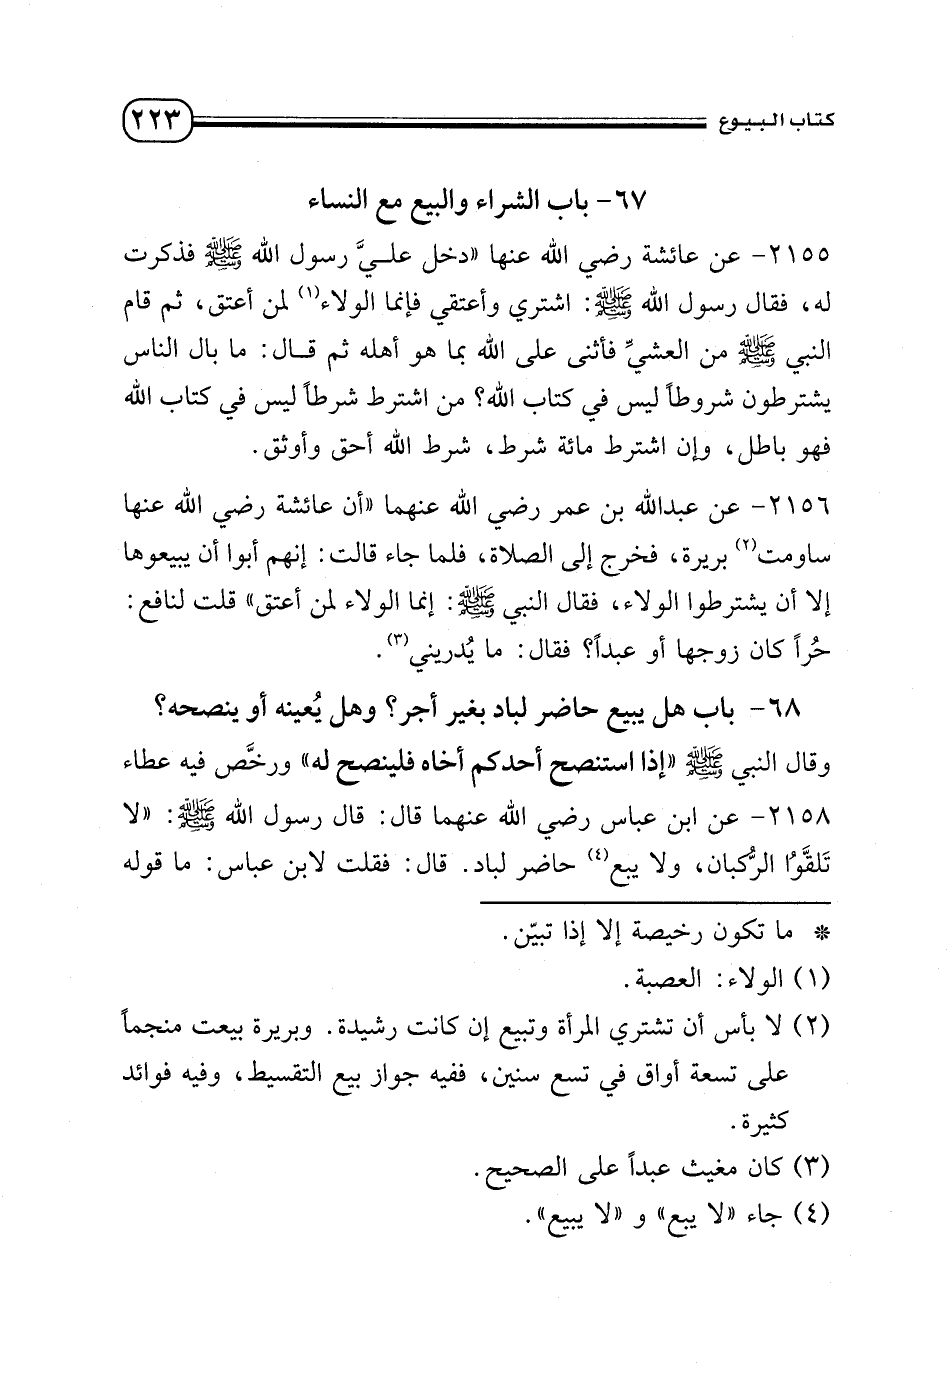 كتاب البيوع ٢٢٣
٦٧- باب الشراء والبيع مع النساء
٢١٥٥- عن عائشة رضي الله عنها «دخل علـيَّ رسول الله ﷺ فذكرت
له، فقال رسول الله ﷺ: اشتري وأعتقي فإنما الولاء(١) لمن أعتق، ثم قام
النبي ﷺ من العشيِّ فأثنى على الله بما هو أهله ثم قـال: ما بال الناس
يشترطون شروطاً ليس في كتاب الله؟ من اشترط شرطاً ليس في كتاب الله
فهو باطل، وإن اشترط مائة شرط، شرط الله أحق وأوثق.
٢١٥٦- عن عبدالله بن عمر رضي الله عنهما «أن عائشة رضي الله عنها
ساومت(٢) بريرة، فخرج إلى الصلاة، فلما جاء قالت: إنهم أبوا أن يبيعوها
إلا أن يشترطوا الولاء، فقال النبي ﷺ: إنما الولاء لمن أعتق» قلت لنافع:
حُراً كان زوجها أو عبداً؟ فقال: ما يُدريني(٣).
٦٨- باب هل يبيع حاضر لباد بغير أجر؟ وهل يُعينه أو ينصحه؟
وقال النبي ﷺ «إذا استنصح أحدكم أخاه فلينصح له» ورخَّص فيه عطاء
٢١٥٨- عن ابن عباس رضي الله عنهما قال: قال رسول الله ﷺ: «لا
تَلقَّوُا الرُّكبان، ولا يبع(٤) حاضر لباد. قال: فقلت لابن عباس: ما قوله
* ما تكون رخيصة إلا إذا تبيّن.
(١) الولاء: العصبة.
(٢) لا بأس أن تشتري المرأة وتبيع إن كانت رشيدة. وبريرة بيعت منجماً
على تسعة أواق في تسع سنين، ففيه جواز بيع التقسيط، وفيه فوائد
كثيرة.
(٣) كان مغيث عبداً على الصحيح.
(٤) جاء «لا يبع» و «لا يبيع».